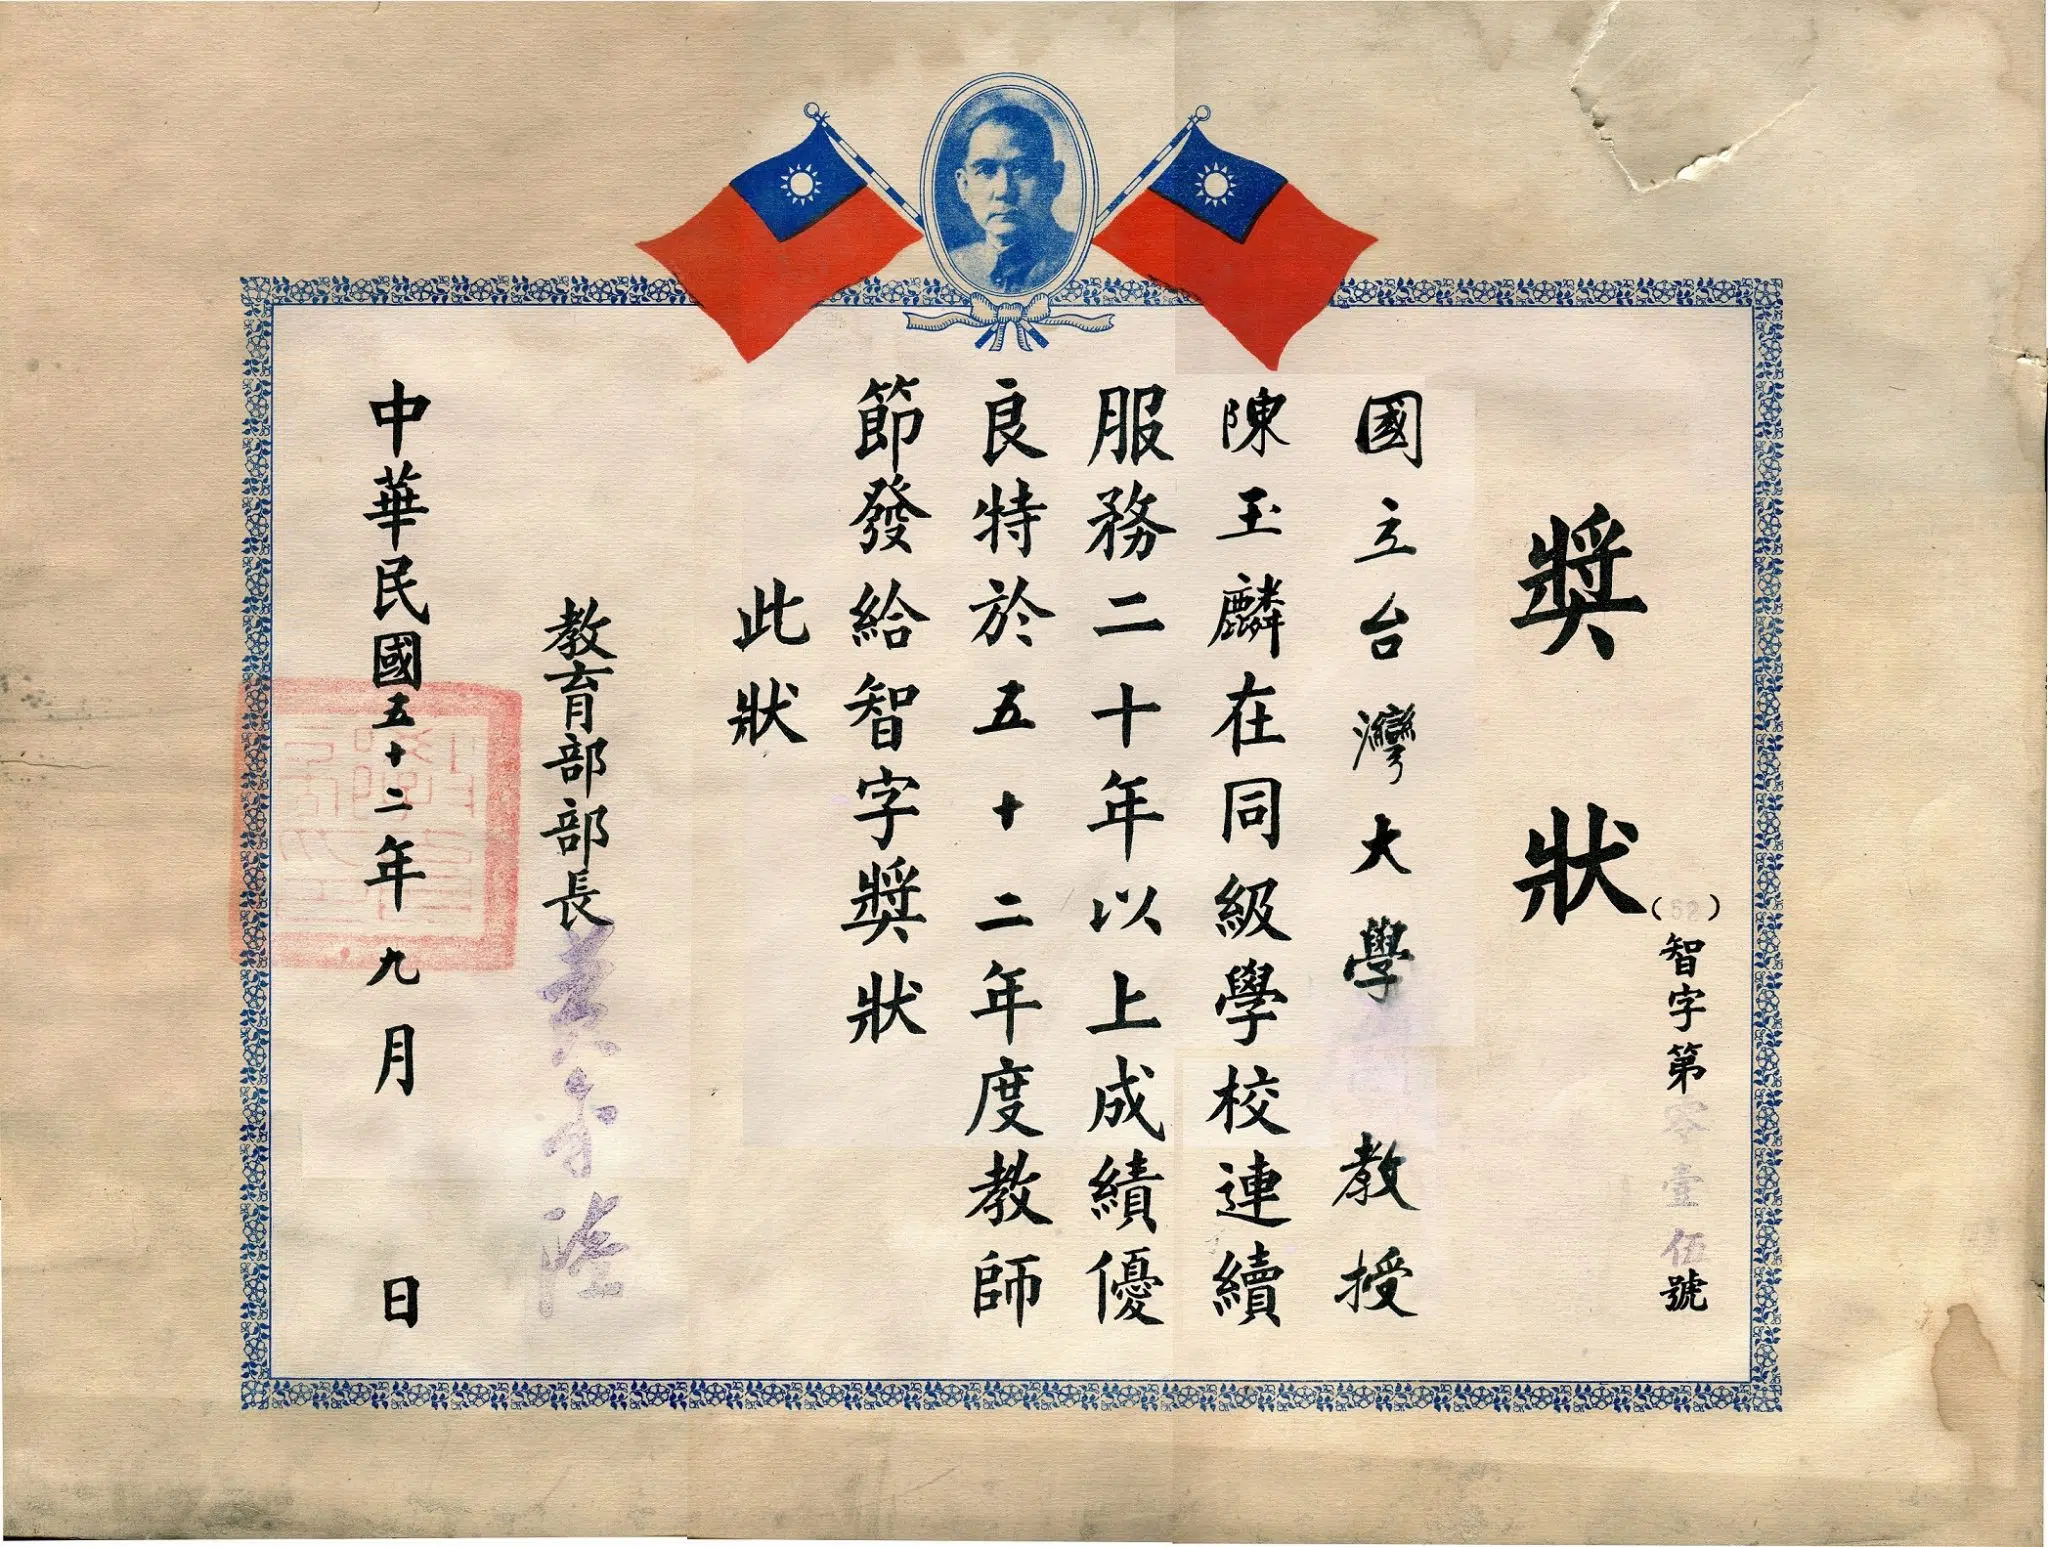 獎狀
(52)智字第零壹伍號
國立台灣大學教授
陳玉麟在同級學校連續
服務二十年以上成績優
良特於五十二年度教師
節發給智字獎狀
此狀
教育部部長黃季陸
中華民國五十二年九月 日